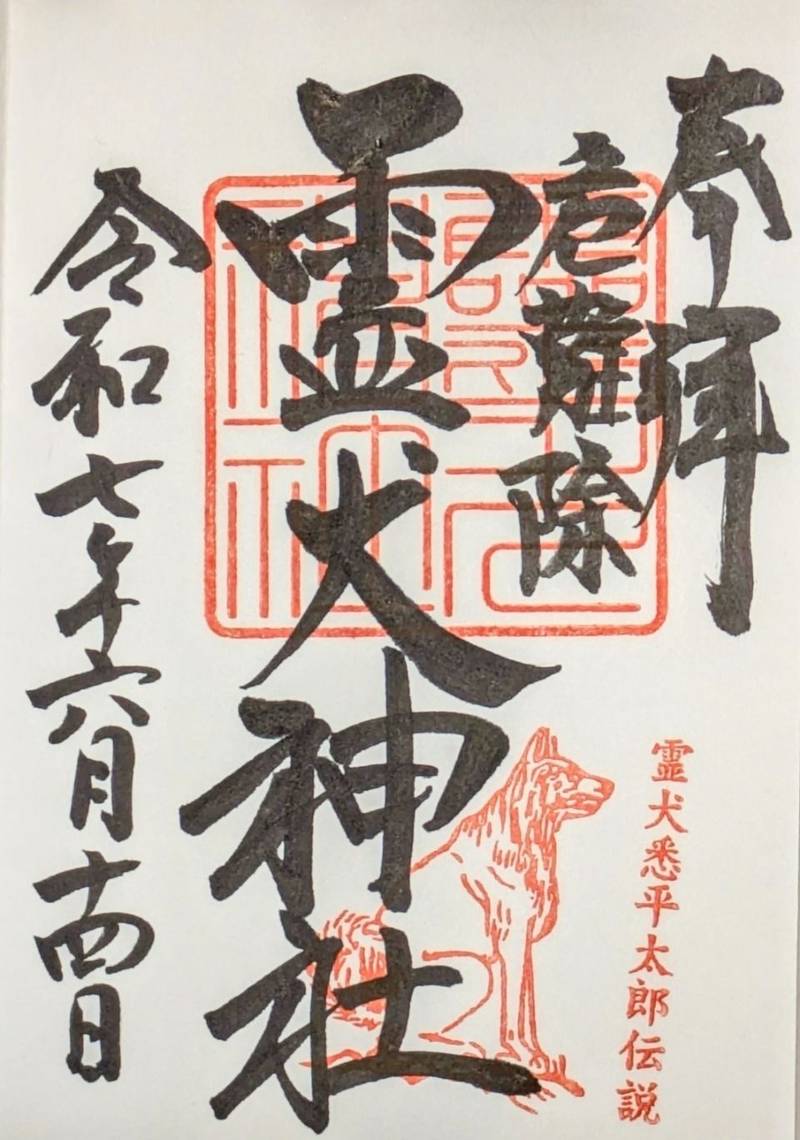 奉拝
危難除
霊犬神社
霊犬悉平太郎伝説
令和七年六月十四日